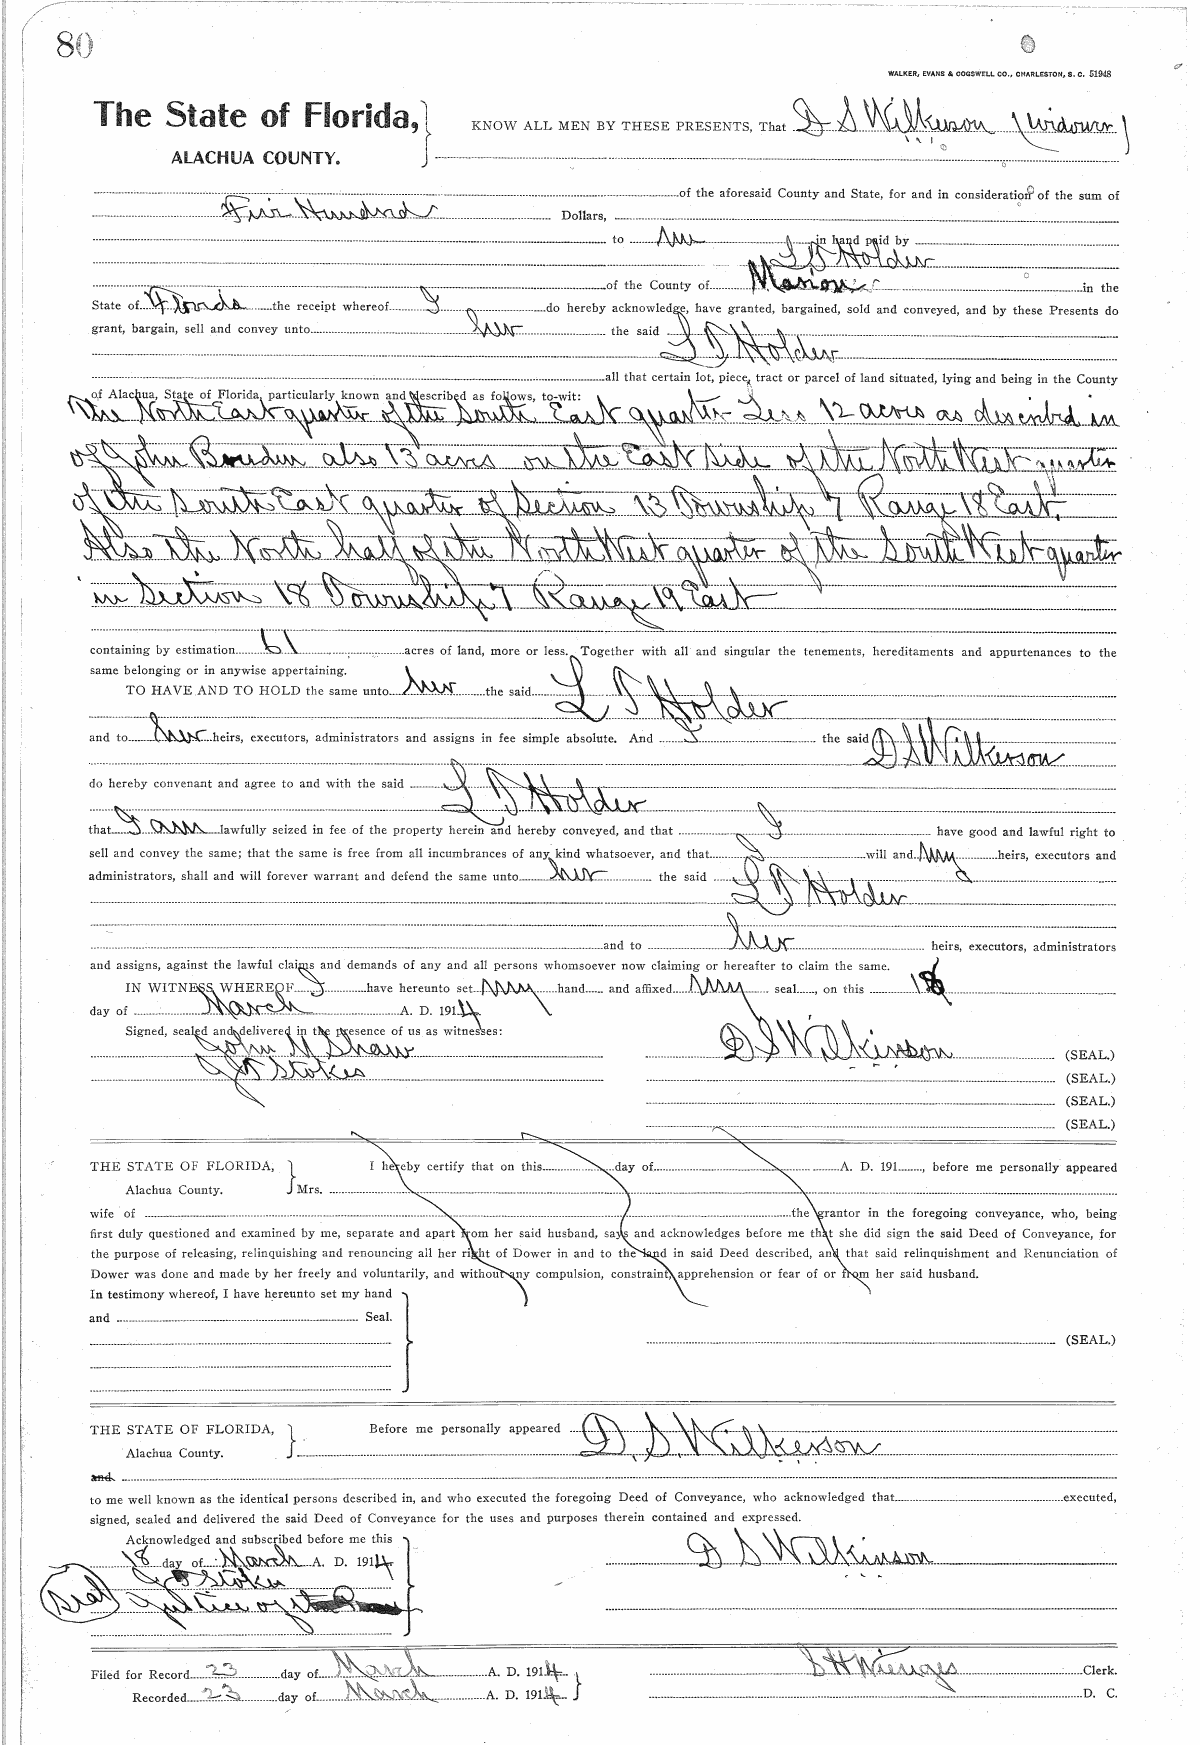 80
WALKER, EVANS & COGSWELL CO., CHARLESTON, S. C. 51948
The State of Florida, KNOW ALL MEN BY THESE PRESENTS, That D S Wilkerson (widower)
ALACHUA COUNTY.
of the aforesaid County and State, for and in consideration of the sum of
Five Hundred Dollars,
to me in hand paid by
L D Holder
of the County of Marion in the
State of Florida the receipt whereof I do hereby acknowledge, have granted, bargained, sold and conveyed, and by these Presents do
grant, bargain, sell and convey unto her the said L D Holder
all that certain lot, piece, tract or parcel of land situated, lying and being in the County
of Alachua, State of Florida, particularly known and described as follows, to-wit:
The North East quarter of the South East quarter Less 12 acres as described in
of John also 13 acres on the East Side of the North West quarter
of the South East quarter of Section 13 Township 7 Range 18 East.
Also the North half of the North West quarter of the South West quarter
in Section 18 Township 7 Range 19 East
containing by estimation 61 acres of land, more or less. Together with all and singular the tenements, hereditaments and appurtenances to the
same belonging or in anywise appertaining.
TO HAVE AND TO HOLD the same unto her the said L D Holder
and to her heirs, executors, administrators and assigns in fee simple absolute. And I the said D S Wilkerson
do hereby convenant and agree to and with the said L D Holder
that I am lawfully seized in fee of the property herein and hereby conveyed, and that I have good and lawful right to
sell and convey the same; that the same is free from all incumbrances of any kind whatsoever, and that I will and my heirs, executors and
administrators, shall and will forever warrant and defend the same unto her the said L D Holder
and to her heirs, executors, administrators
and assigns, against the lawful claims and demands of any and all persons whomsoever now claiming or hereafter to claim the same.
IN WITNESS WHEREOF I have hereunto set my hand and affixed my seal, on this 18
day of March A. D. 1914
Signed, sealed and delivered in the presence of us as witnesses:
John M Shaw D S Wilkinson (SEAL.)
J D Stokes (SEAL.)
(SEAL.)
(SEAL.)
THE STATE OF FLORIDA, I hereby certify that on this day of A. D. 191 , before me personally appeared
Alachua County. Mrs.
wife of the grantor in the foregoing conveyance, who, being
first duly questioned and examined by me, separate and apart from her said husband, says and acknowledges before me that she did sign the said Deed of Conveyance, for
the purpose of releasing, relinquishing and renouncing all her right of Dower in and to the land in said Deed described, and that said relinquishment and Renunciation of
Dower was done and made by her freely and voluntarily, and without any compulsion, constraint, apprehension or fear of or from her said husband.
In testimony whereof, I have hereunto set my hand
and Seal.
(SEAL.)
THE STATE OF FLORIDA, Before me personally appeared D. S. Wilkerson
Alachua County.
and
to me well known as the identical persons described in, and who executed the foregoing Deed of Conveyance, who acknowledged that executed,
signed, sealed and delivered the said Deed of Conveyance for the uses and purposes therein contained and expressed.
Acknowledged and subscribed before me this
18 day of March A. D. 1914 D S Wilkinson
J D Stokes
Seal Justice of the
Filed for Record 23 day of March A. D. 1914 S H Wienges Clerk.
Recorded 23 day of March A. D. 1914 D. C.